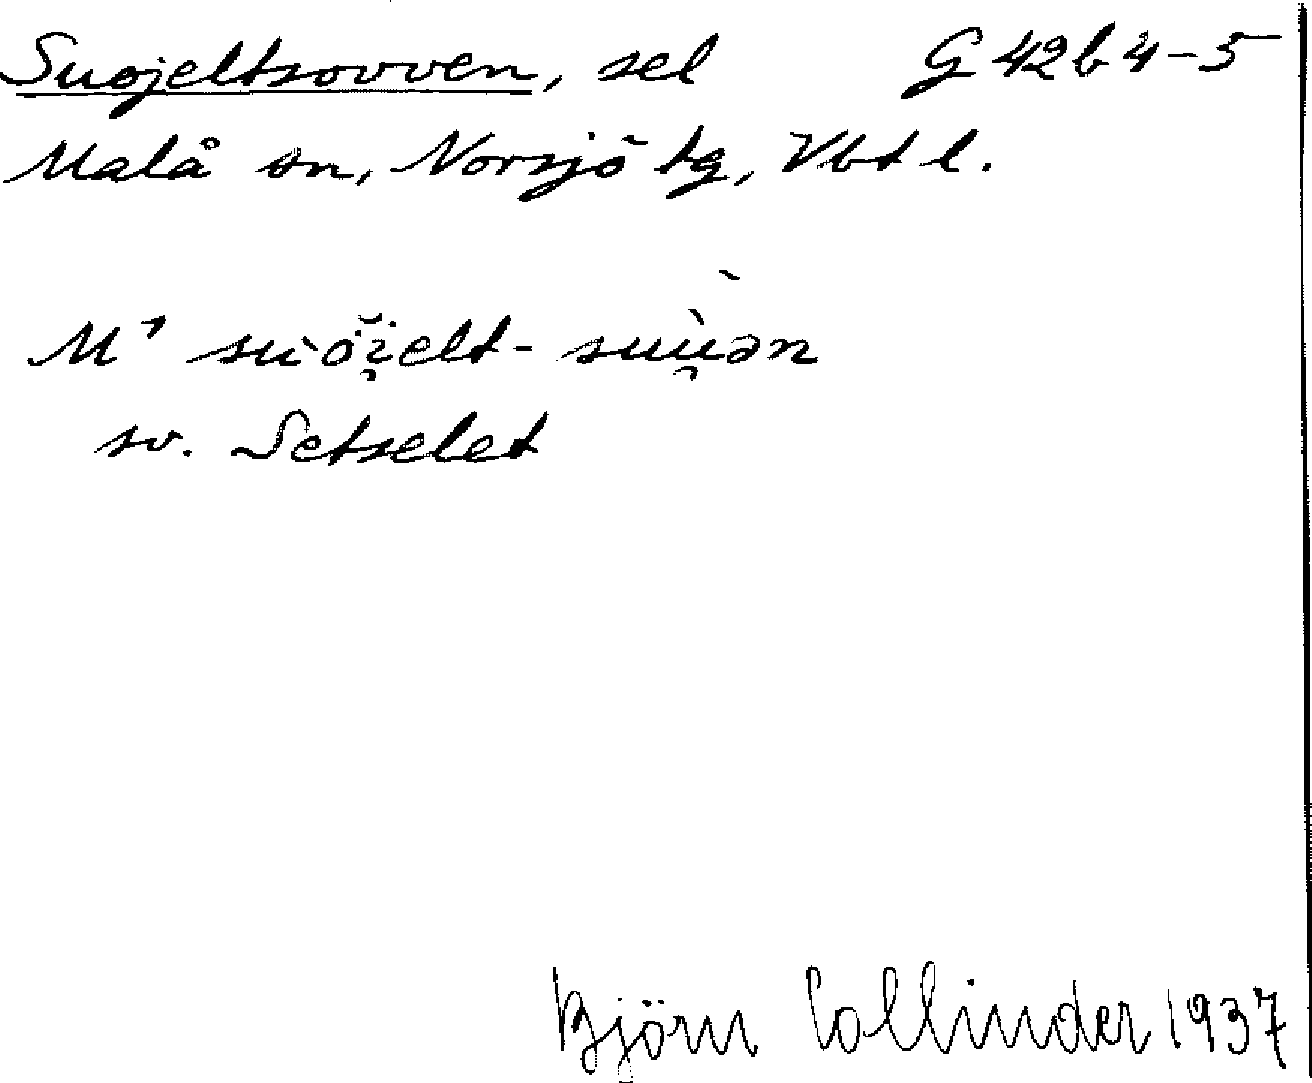 Suojeltsovven, sel G 42 b 4-5
Malå sn, Norsjö tg, Vbt l.
sv. Setselet
Björn Collinder 1937